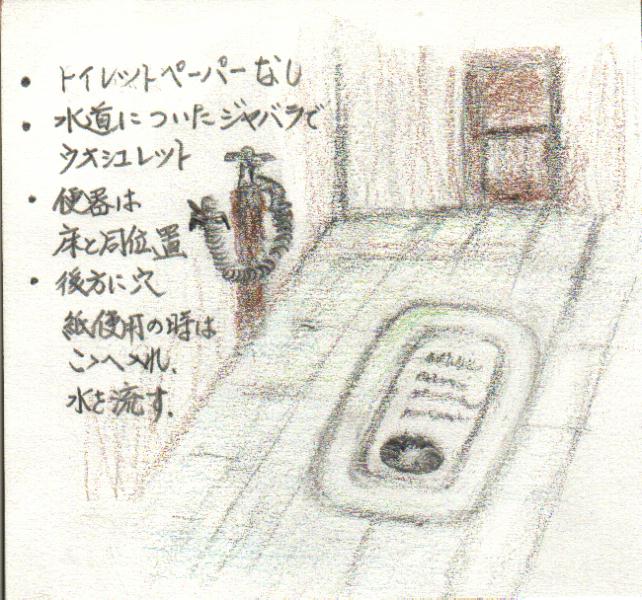 ・トイレットペーパーなし
・水道についたジャバラで
ウオシュレット
・便器は
床と同位置
・後方に穴
紙使用の時は
ここへ入れ、
水を流す。